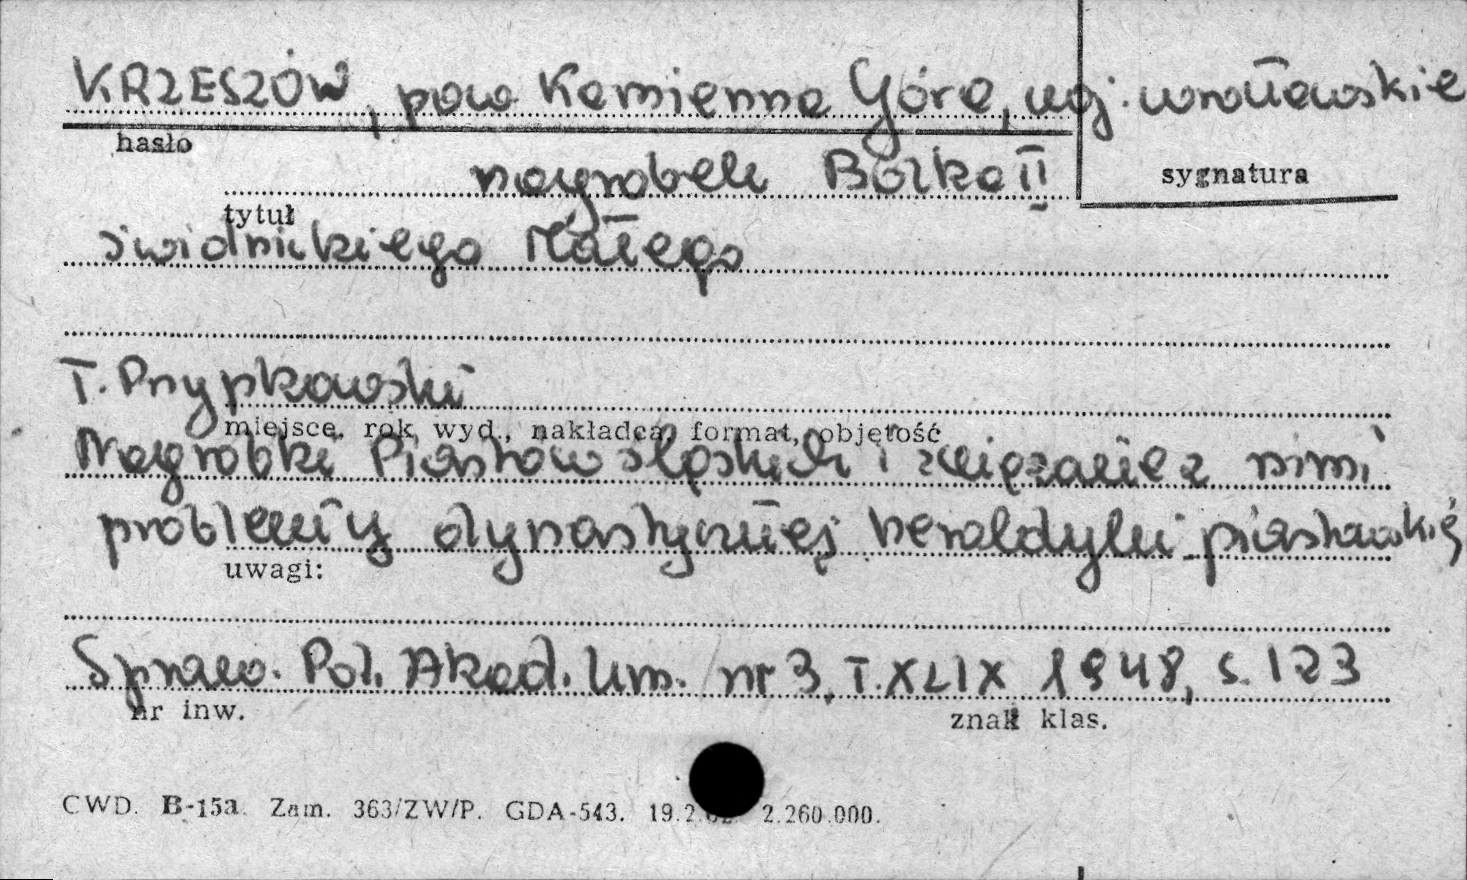 KRZESZÓW, pow. Kamienna Góra, woj. wrocławskie
hasło
sygnatura
nagrobek Bolka II
tytuł
świdnickiego Małego
T. Przypkowski
miejsce, rok wyd., nakładca, format, objętość
Nagrobki Piastów śląskich i związane z nimi
problemy dynastycznej heraldyki piastowskiej
uwagi:
Spraw. Pol. Akad. Um. nr 3, T. XLIX 1948, s. 123
nr inw.
znak klas.
CWD. B-15a. Zam. 363/ZW/P. GDA-543. 2.260.000.